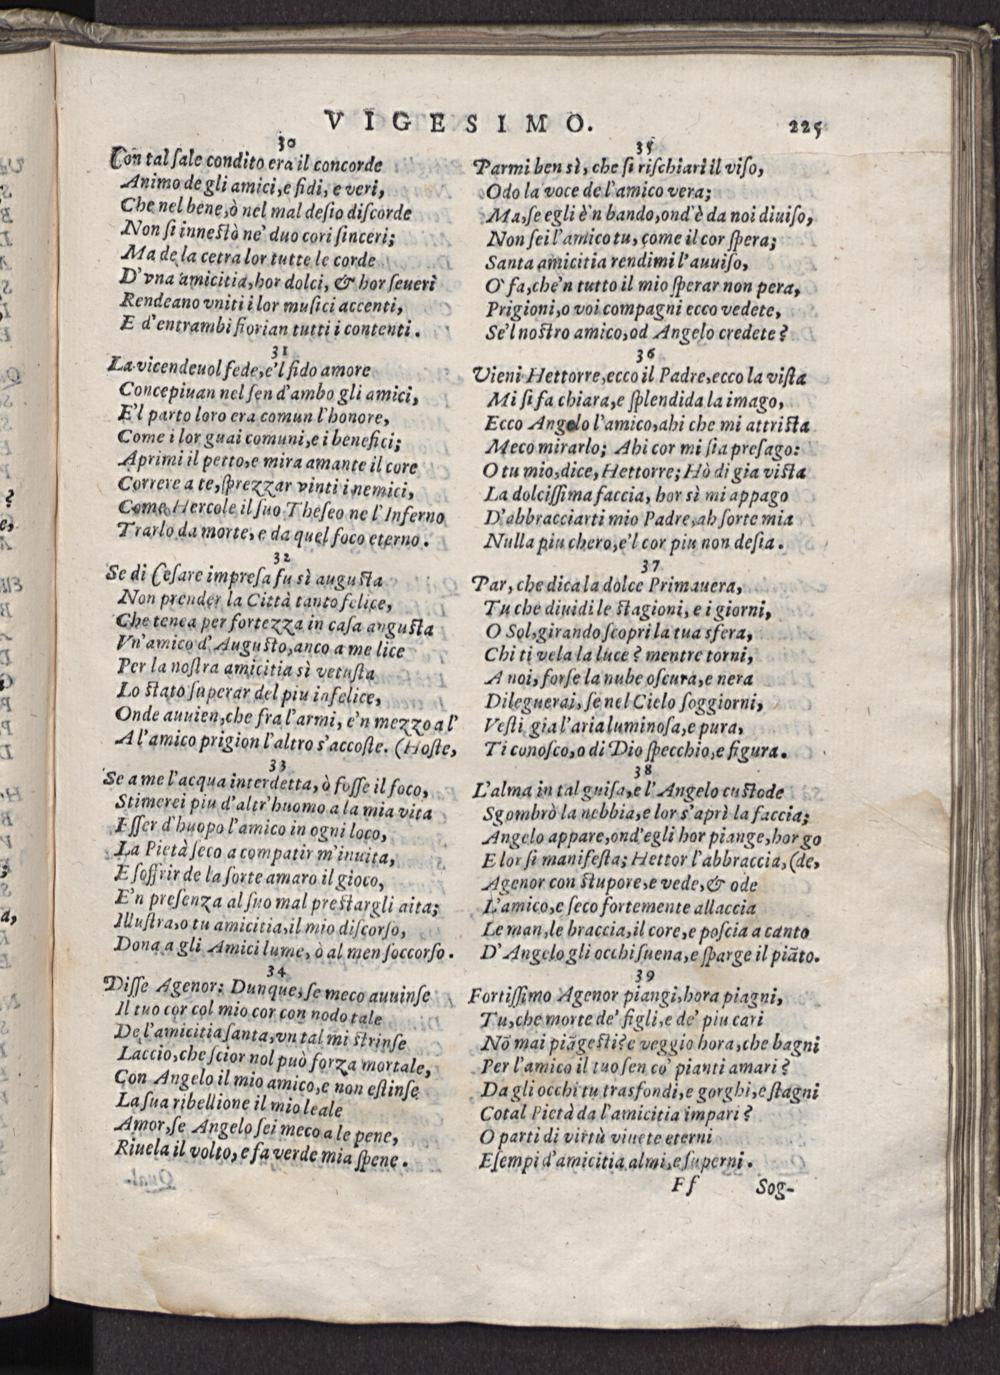 VIGESIMO. 225
30
Con tal sale condito era il concorde
Animo de gli amici, e fidi, e veri,
Che nel bene, ò nel mal desio discorde
Non si innestò ne' duo cori sinceri;
Ma de la cetra lor tutte le corde
D'vna amicitia, hor dolci, & hor seueri
Rendeano vniti i lor musici accenti,
E d'entrambi fiorian tutti i contenti.
31
La vicendeuol fede, e'l fido amore
Concepiuan nel sen d'ambo gli amici,
E'l parto loro era comun l'honore,
Come i lor guai comuni, e i benefici;
Aprimi il petto, e mira amante il core
Correre a te, sprezzar vinti i nemici,
Come Hercole il suo Theseo ne l'Inferno
Trarlo da morte, e da quel foco eterno.
32
Se di Cesare impresa fu sì augusta
Non prender la Città tanto felice,
Che tenea per fortezza in casa angusta
Vn'amico d'Augusto, anco a me lice
Per la nostra amicitia sì vetusta
Lo stato superar del piu infelice,
Onde auuien, che fra l'armi, e'n mezzo a l'
A l'amico prigion l'altro s'accoste. (Hoste,
33
Se a me l'acqua interdetta, ò fosse il foco,
Stimerei piu d'altr'huomo a la mia vita
Esser d'huopo l'amico in ogni loco,
La Pietà seco a compatir m'inuita,
E soffrir de la sorte amaro il gioco,
E'n presenza al suo mal prestargli aita;
Illustra, o tu amicitia, il mio discorso,
Dona a gli Amici lume, ò al men soccorso.
34
Disse Agenor: Dunque, se meco auuinse
Il tuo cor col mio cor con nodo tale
De l'amicitia santa, vn tal mi strinse
Laccio, che scior nol può forza mortale,
Con Angelo il mio amico, e non estinse
La sua ribellione il mio leale
Amor, se Angelo sei meco a le pene,
Riuela il volto, e fa verde mia spene.
35
Parmi ben sì, che si rischiari il viso,
Odo la voce de l'amico vera;
Ma, se egli è'n bando, ond'è da noi diuiso,
Non sei l'amico tu, come il cor spera;
Santa amicitia rendimi l'auuiso,
O' fa, che'n tutto il mio sperar non pera,
Prigioni, o voi compagni ecco vedete,
Se'l nostro amico, od Angelo credete?
36
Vieni Hettorre, ecco il Padre, ecco la vista
Mi si fa chiara, e splendida la imago,
Ecco Angelo l'amico, ahi che mi attrista
Meco mirarlo; Ahi cor mi sia presago:
O tu mio, dice, Hettorre; Hò di gia vista
La dolcissima faccia, hor sì mi appago
D'abbracciarti mio Padre, ah sorte mia
Nulla piu chero, e'l cor piu non desia.
37
Par, che dica la dolce Primauera,
Tu che diuidi le stagioni, e i giorni,
O Sol, girando scopri la tua sfera,
Chi ti vela la luce? mentre torni,
A noi, forse la nube oscura, e nera
Dileguerai, se nel Cielo soggiorni,
Vesti gia l'aria luminosa, e pura,
Ti conosco, o di Dio specchio, e figura.
38
L'alma in tal guisa, e l'Angelo custode
Sgombrò la nebbia, e lor s'aprì la faccia;
Angelo appare, ond'egli hor piange, hor go
E lor si manifesta; Hettor l'abbraccia, (de,
Agenor con stupore, e vede, & ode
L'amico, e seco fortemente allaccia
Le man, le braccia, il core, e poscia a canto
D'Angelo gli occhi suena, e sparge il piãto.
39
Fortissimo Agenor piangi, hora piagni,
Tu, che morte de' figli, e de' piu cari
Nõ mai piãgesti? e veggio hora, che bagni
Per l'amico il tuo sen co' pianti amari?
Da gli occhi tu trasfondi, e gorghi, e stagni
Cotal Pietà da l'amicitia impari?
O parti di virtù viuete eterni
Esempi d'amicitia almi, e superni.
Ff Sog-